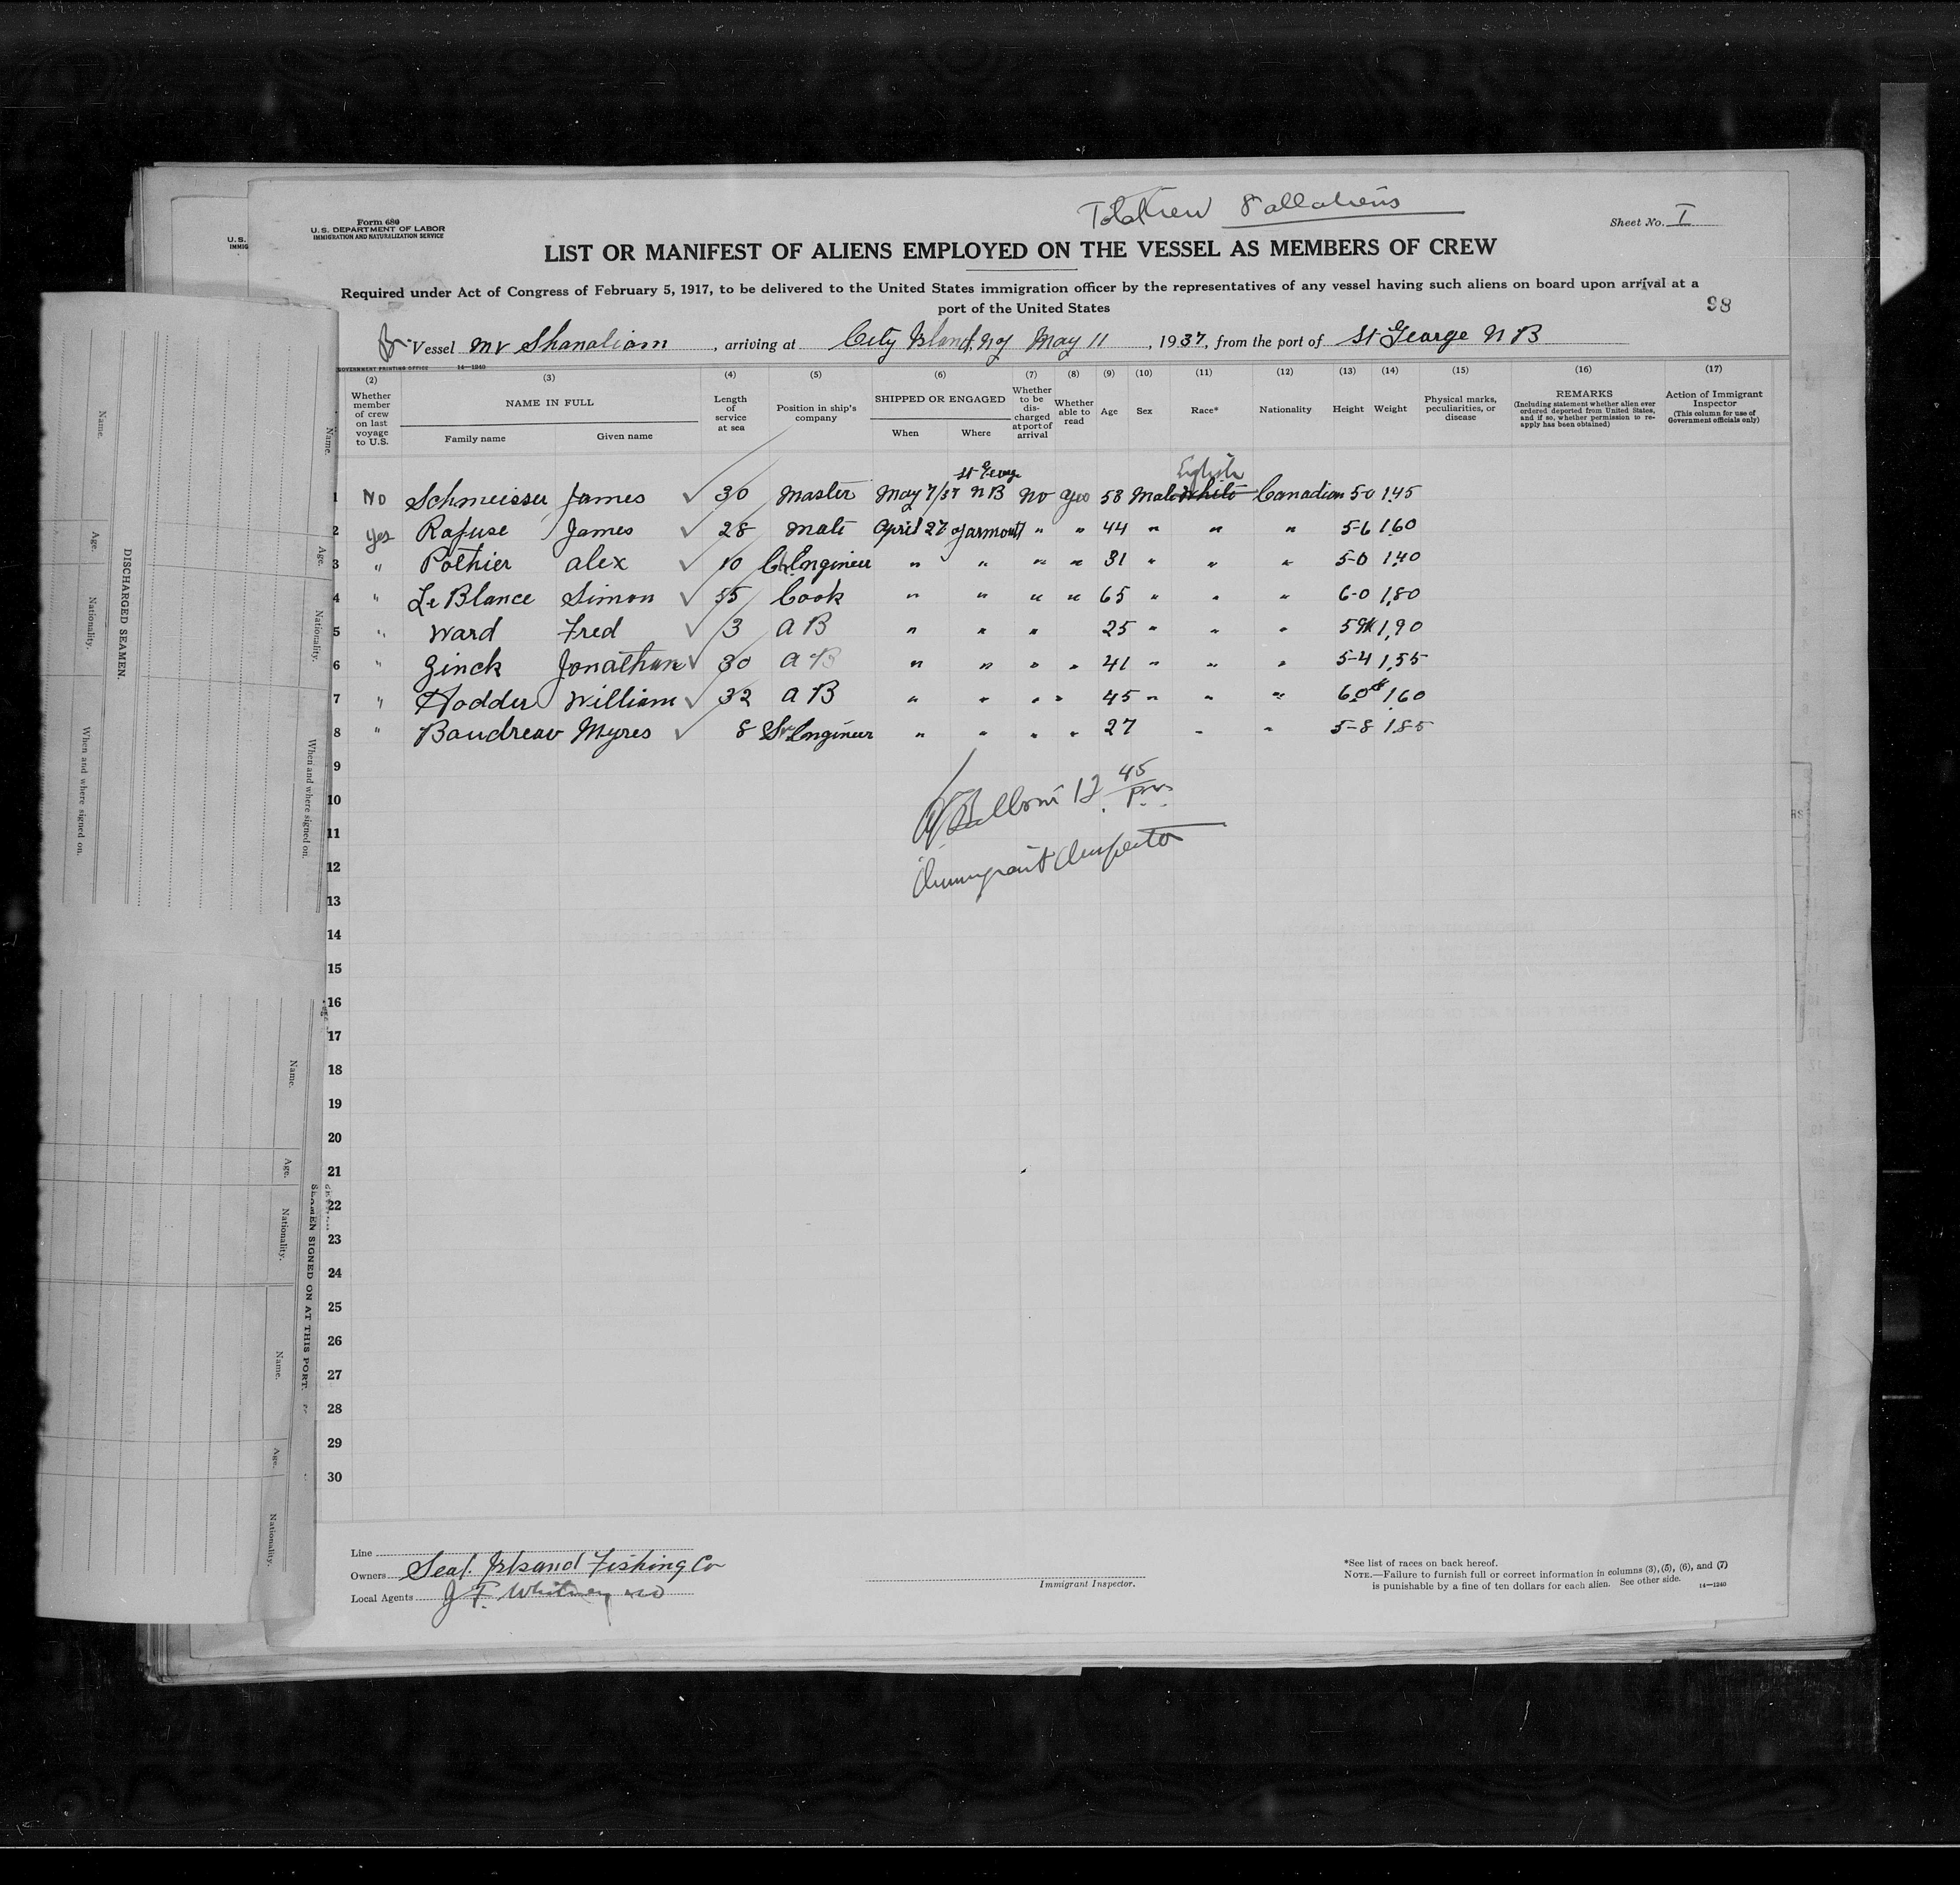 Total Crew 8 all aliens
Form 680
U.S. DEPARTMENT OF LABOR
IMMIGRATION AND NATURALIZATION SERVICE
Sheet No. I
U.S.
IMMIG
LIST OR MANIFEST OF ALIENS EMPLOYED ON THE VESSEL AS MEMBERS OF CREW
Required under Act of Congress of February 5, 1917, to be delivered to the United States immigration officer by the representatives of any vessel having such aliens on board upon arrival at a
port of the United States
98
Vessel MV Shanaliam, arriving at City Island, NY May 11, 1937, from the port of St George N B
GOVERNMENT PRINTING OFFICE 14—1240
(2) (3) (4) (5) (6) (7) (8) (9) (10) (11) (12) (13) (14) (15) (16) (17)
Whether member of crew on last voyage to U.S. NAME IN FULL Family name Given name Length of service at sea Position in ship's company SHIPPED OR ENGAGED When Where Whether to be discharged at port of arrival Whether able to read Age Sex Race* Nationality Height Weight Physical marks, peculiarities, or disease REMARKS (Including statement whether alien ever ordered deported from United States, and if so, whether permission to reapply has been obtained) Action of Immigrant Inspector (This column for use of Government officials only)
St George
English
1 No Schmeisser James ✓ 30 Master May 7/37 N B No Yes 58 Male White Canadian 5-0 145
2 Yes Rafuse James ✓ 28 Mate April 27 Yarmouth " " 44 " " " 5-6 160
3 " Pothier Alex ✓ 10 Ch Engineer " " " " 31 " " " 5-0 140
4 " LeBlance Simon ✓ 55 Cook " " " " 65 " " " 6-0 180
5 " Ward Fred ✓ 3 A B " " " 25 " " " 190
6 " Zinck Jonathan ✓ 30 A B " " " " 41 " " " 5-4 155
7 " Hodder William ✓ 32 A B " " " " 45 " " " 6-0 160
8 " Baudreau Myres ✓ 8 Engineer " " " " 27 " " 5-8 185
9
10
12 45 pm
11
12
Immigrant Inspector
13
14
15
16
17
18
19
20
21
22
23
24
25
26
27
28
29
30
Line
Owners Seal Island Fishing Co
Local Agents J F. Whitney
Immigrant Inspector.
*See list of races on back hereof.
NOTE.—Failure to furnish full or correct information in columns (3), (5), (6), and (7)
is punishable by a fine of ten dollars for each alien. See other side.
14—1240
DISCHARGED SEAMEN.
Name.
Age.
Nationality.
When and where signed on.
Name.
Age.
Nationality.
When and where signed on.
SEAMEN SIGNED ON AT THIS PORT.
Name.
Age.
Nationality.
Name.
Age.
Nationality.